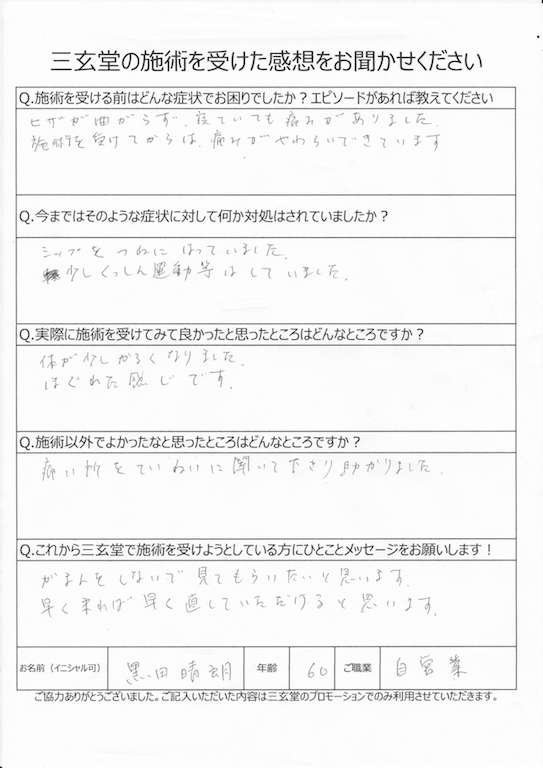 三玄堂の施術を受けた感想をお聞かせください
Q.施術を受ける前はどんな症状でお困りでしたか？エピソードがあれば教えてください
ヒザが曲がらず、寝ていても痛みがありました。
施術を受けてからは、痛みがやわらいできています
Q.今まではそのような症状に対して何か対処はされていましたか？
シップをつねにはっていました。
少しくっしん運動等はしていました。
Q.実際に施術を受けてみて良かったと思ったところはどんなところですか？
体が少しかるくなりました。
ほぐれた感じです。
Q.施術以外でよかったなと思ったところはどんなところですか？
痛い所をていねいに聞いて下さり助かりました。
Q.これから三玄堂で施術を受けようとしている方にひとことメッセージをお願いします！
がまんをしないで見てもらいたいと思います。
早く来れば早く直していただけると思います。
お名前（イニシャル可） 黒田晴朗 年齢 60 ご職業 自営業
ご協力ありがとうございました。ご記入いただいた内容は三玄堂のプロモーションでのみ利用させていただきます。